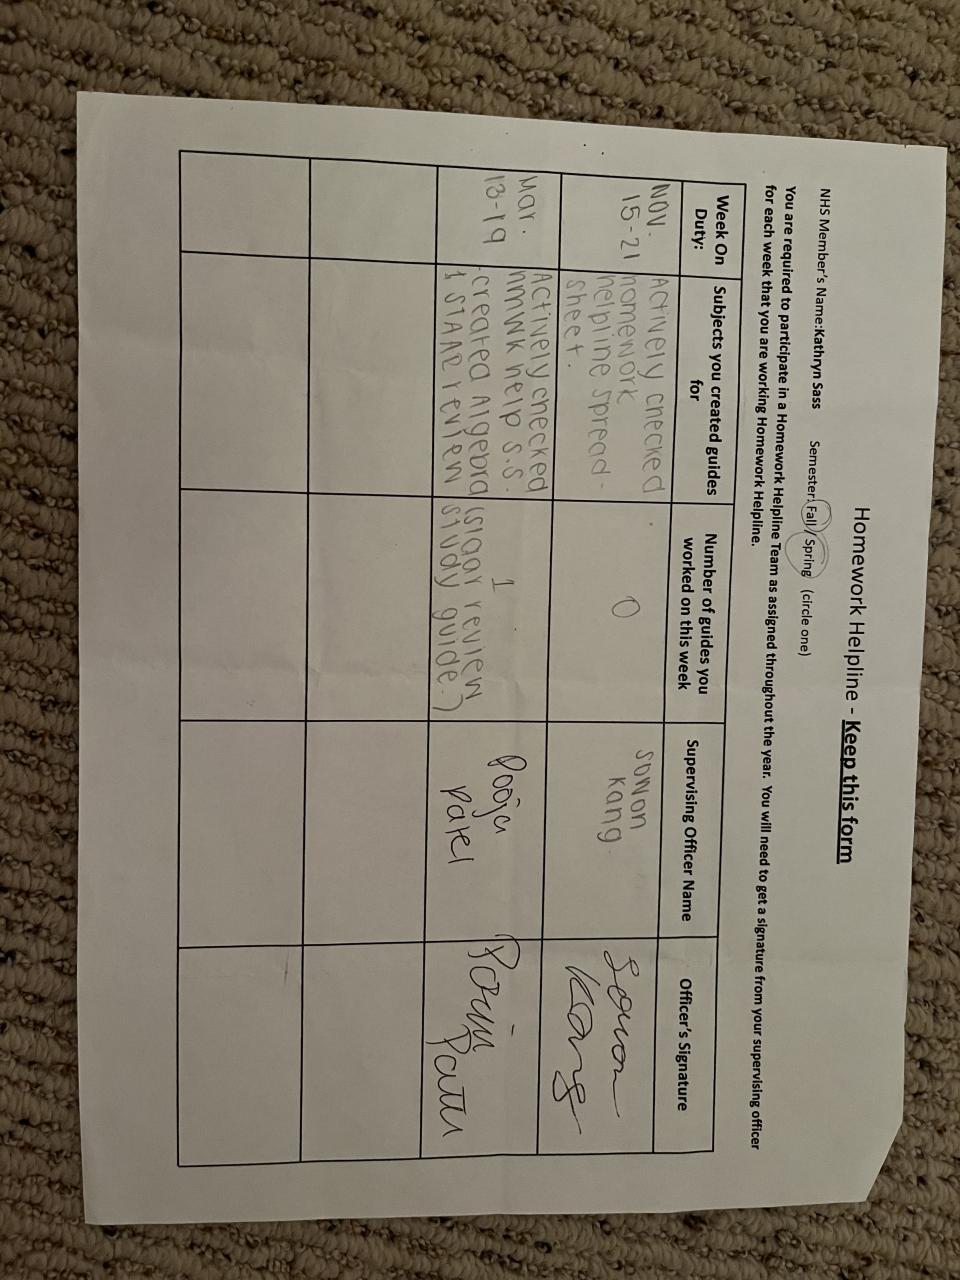 Homework Helpline - Keep this form
NHS Member's Name:Kathryn Sass Semester: Fall / Spring (circle one)
You are required to participate in a Homework Helpline Team as assigned throughout the year. You will need to get a signature from your supervising officer
for each week that you are working Homework Helpline.
Week On
Duty:
Subjects you created guides
for
Number of guides you
worked on this week
Supervising Officer Name
Officer's Signature
Nov.
15-21
Actively checked
homework
helpline spread-
sheet.
0
Sowon
Kang
Sowon
Kang
Mar.
13-19
Actively checked
hmwk help s.s.
-created Algebra
1 STAAR review
1
(staar review
study guide.)
Pooja
Patel